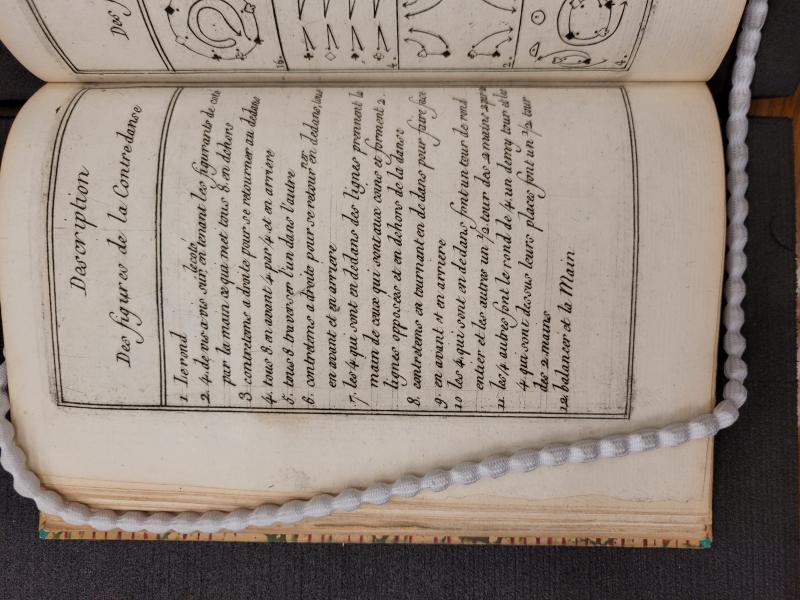 Des
16.
4.
2.
4.
Description
Des figures de la Contredanse
1 Le rond
2. 4 de vis a vis sur le coté en tenant les figurants de coté
par la main ce qui met tous 8. en dehors
3 contretems a droite pour se retourner au dedans
4. tous 8. en avant 4 par 4 et en arriere
5. tous 8. traverser l'un dans l'autre
6. contretems a droite pour se retourner en dedans, tous
en avant et en arriere
7. les 4 qui sont en dedans des lignes prennent la
main de ceux qui sont aux coins et forment 2.
lignes opposées et en dehors de la danse
8. contretems en tournant en dedans pour faire face
9. en avant et en arriere
10 les 4 qui sont en dedans font un tour de rond
entier et les autres un ½ tour des 2 mains apres
11. les 4 autres font le rond de 4 un demy tour et les
4 qui sont dessus leurs places font un ½ tour
des 2 mains
12. balancer et la Main